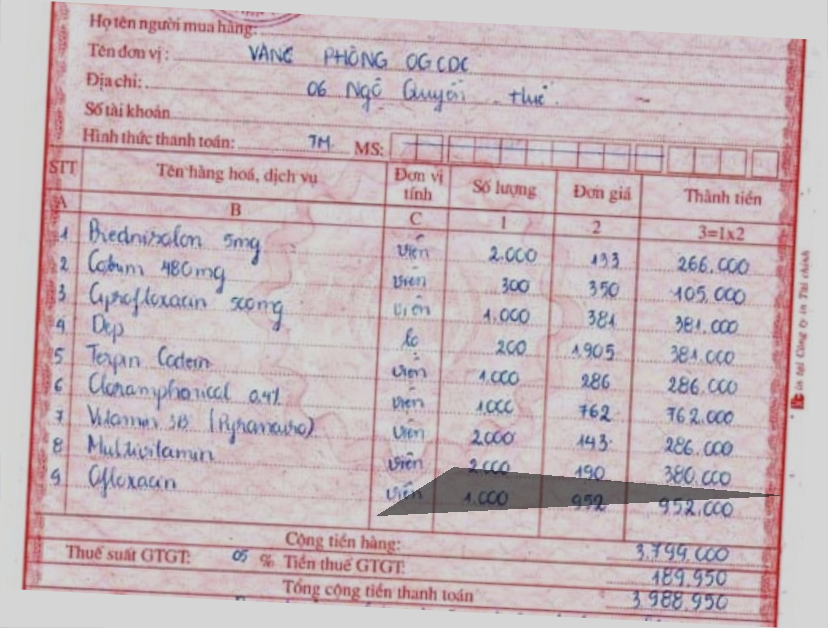 Họ tên người mua hàng:
Tên đơn vị: VĂNG PHÒNG OGCDC
Địa chỉ: 06 Ngô Quyền Huế
Số tài khoản
Hình thức thanh toán: TM. MS:
STT Tên hàng hoá, dịch vụ Đơn vị tính Số lượng Đơn giá Thành tiền
A B C 1 2 3=1x2
1 Prednisolon 5mg viên 2.000 133 266.000
2 Cotrim 480mg viên 300 350 105.000
3 Ciprofloxacin 500mg viên 1.000 381 381.000
4 Dep lọ 200 1.905 381.000
5 Terpin Codein viên 1.000 286 286.000
6 Cloramphenical 0.4% viên 1.000 762 762.000
7 Vitamin 3B viên 2000 143 286.000
8 Multivitamin viên 2.000 190 380.000
9 Ofloxacin viên 1.000 952 952.000
Cộng tiền hàng: 3.799.000
Thuế suất GTGT: 05 % Tiền thuế GTGT: 189.950
Tổng cộng tiền thanh toán 3.988.950
in tại Công ty in Tài chính